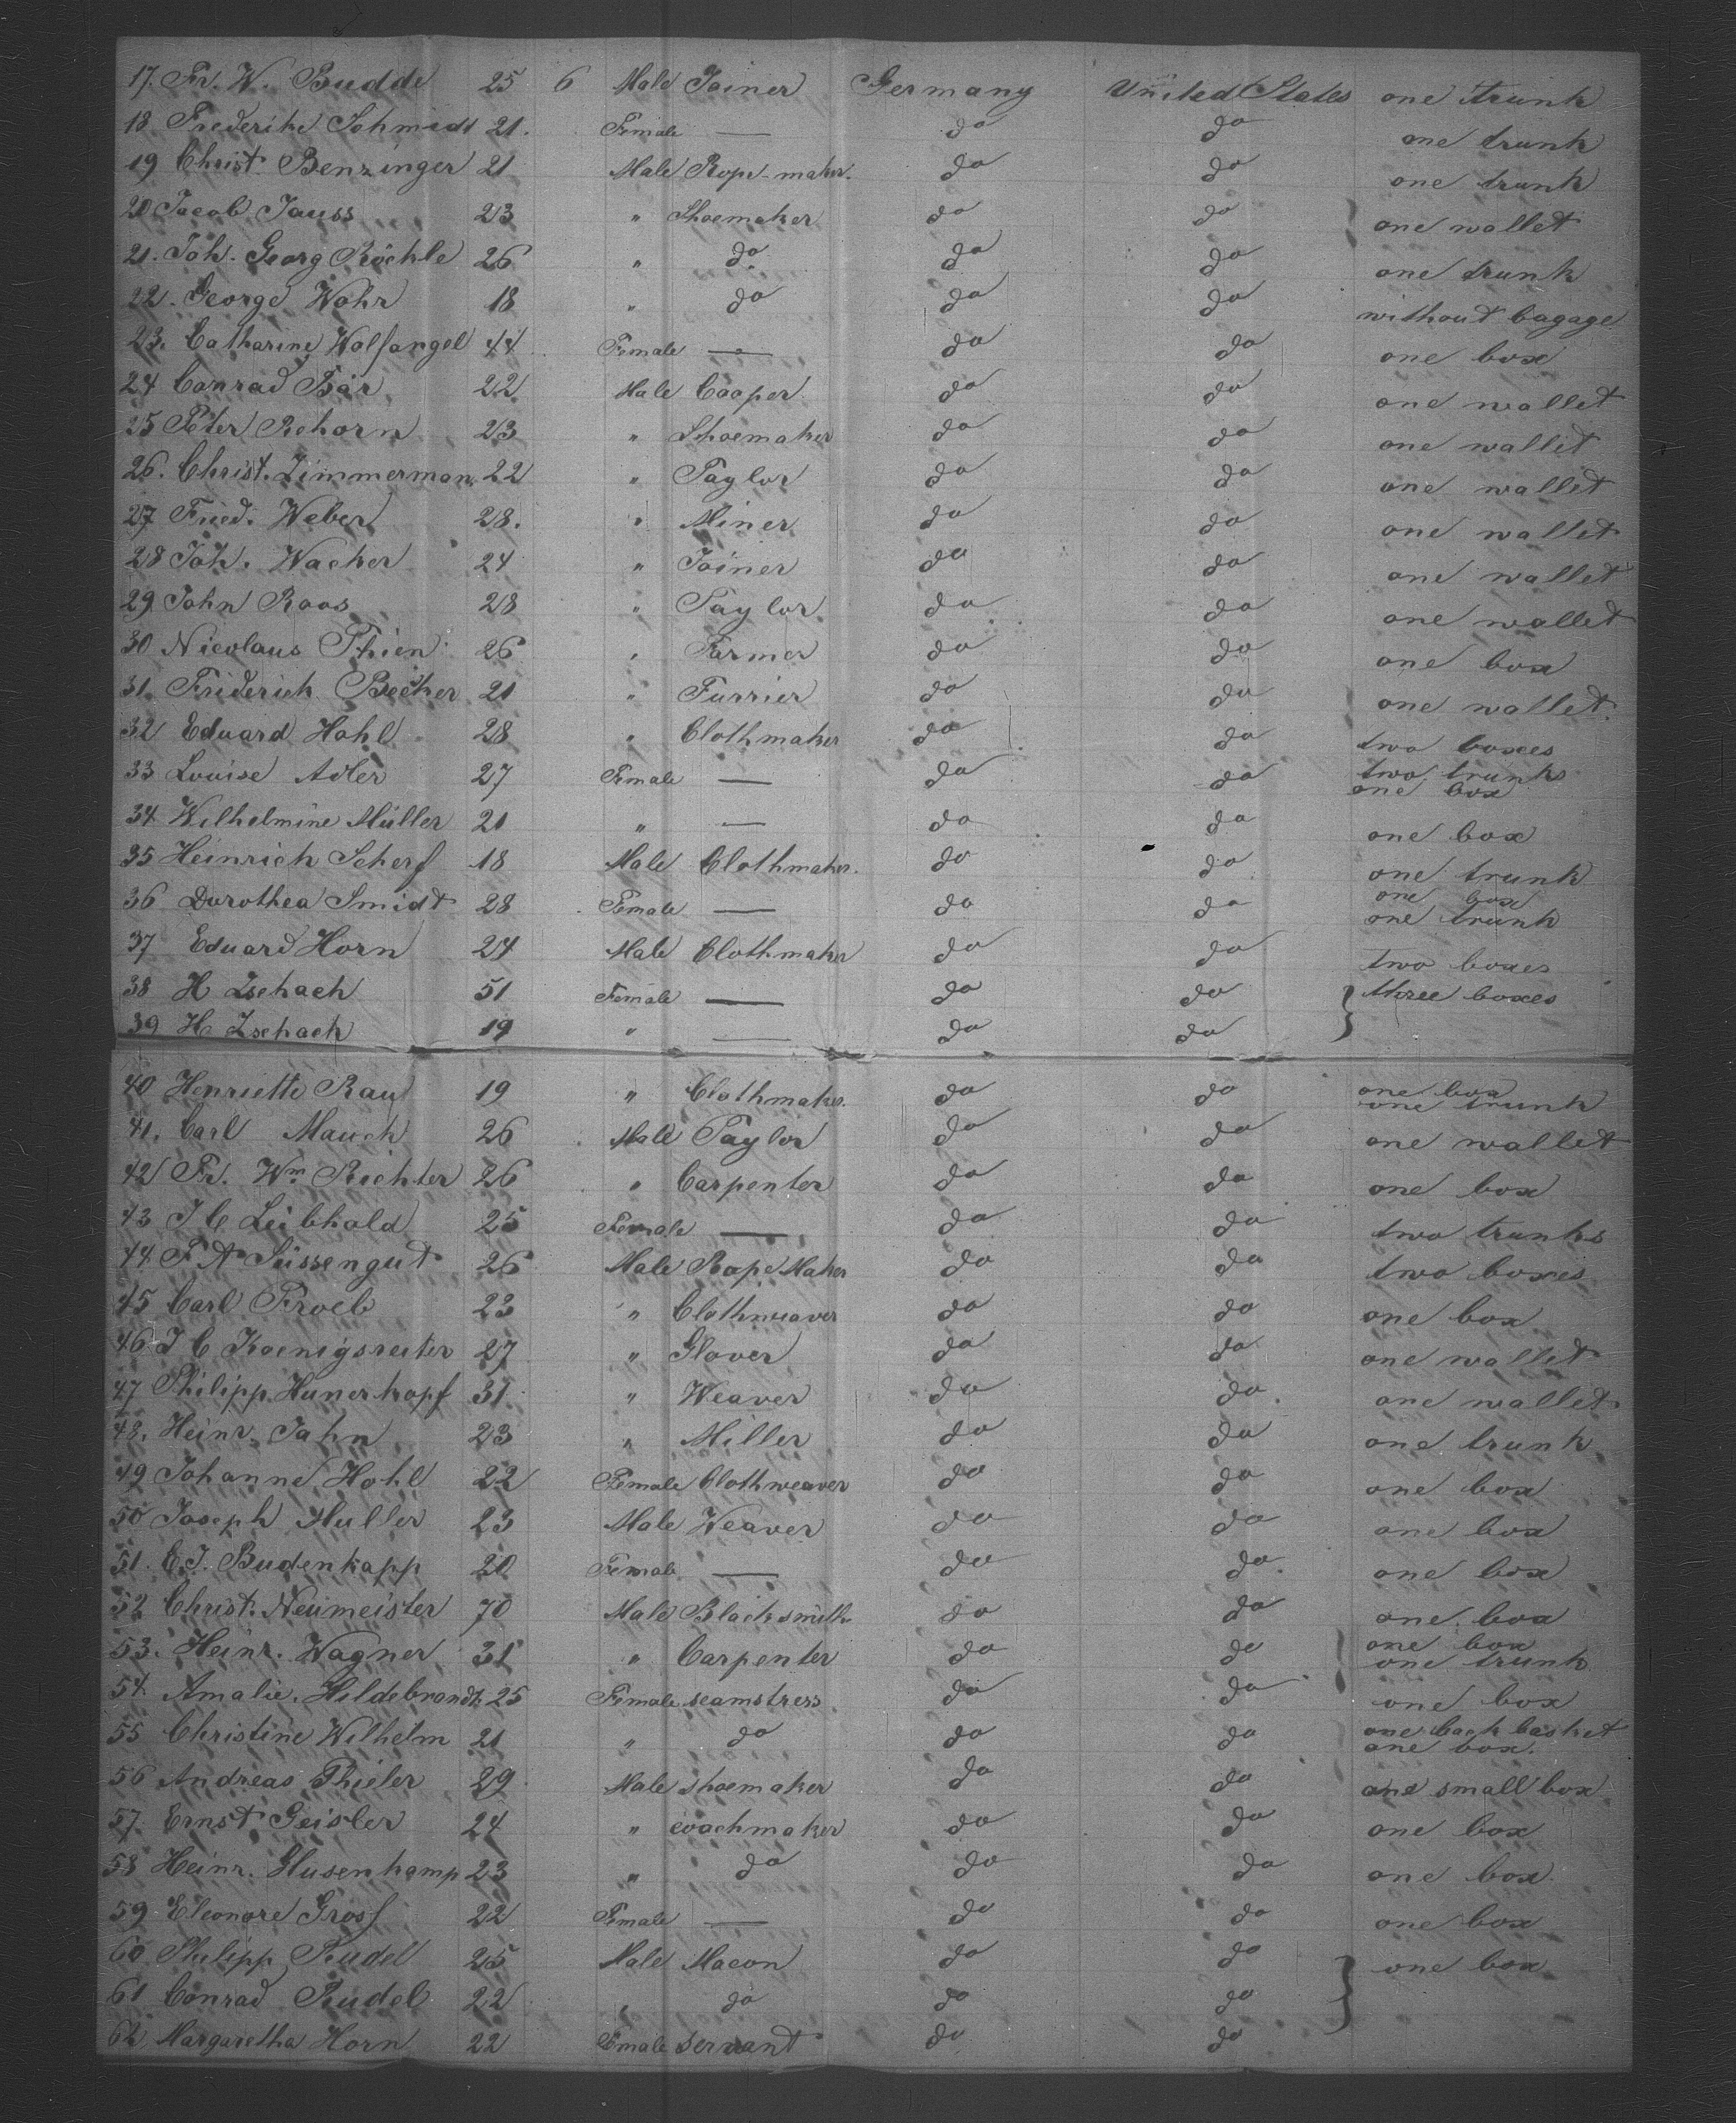 17. Fr. W. Budde 25 6 Male Joiner Germany United States one trunk
18 Frederike Schmidt 21. Female — do do one trunk
19 Christ. Benzinger 21 Male Rope-maker. do do one trunk
20 Jacob Jauss 23 " Shoemaker do do one wallet
21. Joh. Georg Röchle 26 " do do do one trunk
22. George Wohr 18 " do do do without bagage
23. Catharine Wolfangel 44 Female — do do one box
24 Conrad Bär 22 Male Cooper do do one wallet
25 Peter Rehorn 23 " Shoemaker do do one wallet
26. Christ. Zimmerman 22 " Taylor do do one wallet
27 Fried. Weber 28. " Miner do do one wallet
28 Joh. Wacker 24 " Joiner do do one wallet
29 John Roos 28 " Taylor do do one wallet
30 Nicolaus Thien 26 " Farmer do do one box
31. Friderich Becker 21 " Furrier do do one wallet.
32 Eduard Hohl 28 " Clothmaker do do two boxes
33 Louise Adler 27 Female — do do two trunks
one box
34 Wilhelmine Müller 21 " — do do one box
35 Heinrich Scherf 18 Male Clothmaker. do do one trunk
36 Dorothea Smidt 28 Female — do do one box
one trunk
37 Eduard Horn 24 Male Clothmaker do do two boxes
38 H Zschach 51 Female — do do } three boxes
39 H Zschach 19 " — do do
40 Henriette Rau 19 " Clothmaker. do do one box
one trunk
41. Carl Mauch 26 Male Taylor do do one wallet
42 Fr. Wm. Richter 26 " Carpenter do do one box
43 J C Leibhold 25 Female — do do two trunks
44. F A Süssengut 26 Male Rope Maker do do two boxes
45 Carl Froeb 23 " Clothweaver do do one box
46 J C Koenigsreiter 27 " Glover do do one wallet
47 Philipp Hunerkopf 31. " Weaver do do. one wallet
48. Heinr. Jahn 23 " Miller do do one trunk
49 Johanne Hohl 22 Female Clothweaver do do one box
50 Joseph Muller 23 Male Weaver do do one box
51. E. J. Budenkapp 20 Female — do do. one box
52 Christ. Neumeister 70 Male Blacksmith do do one box
53. Heinr. Wagner 31 " Carpenter do do one box
one trunk
54 Amalie. Hildebrandt 25 Female seamstress do do one box
55 Christine Wilhelm 21 " do do do one back basket
one box.
56 Andreas Thieler 29 Male shoemaker do do one small box
57. Ernst Geisler 24 " coachmaker do do one box
58 Heinr. Husenkamp 23 " do do do one box
59 Eleonore Grosf 22 Female — do do one box
60 Philipp Rudel 25 Male Macon do do } one box
61 Conrad Rudel 22 " do do do
62 Margaretha Horn 22 Female servant do do